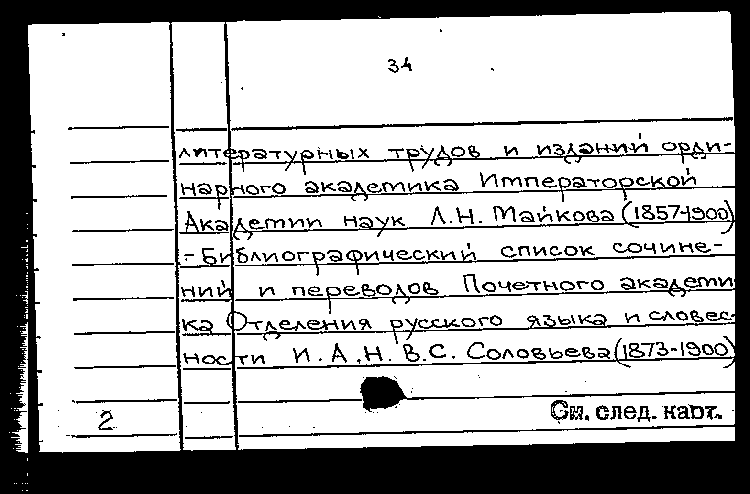 34
литературных трудов и изданий орди-
нарного академика Императорской
Академии наук Л.Н. Майкова (1857-1900)
- Библиографический список сочине-
ний и переводов Почетного академи
ка Отделения русского языка и словес-
ности И.А.Н. В.С. Соловьева (1873-1900)
См. след. карт.
2